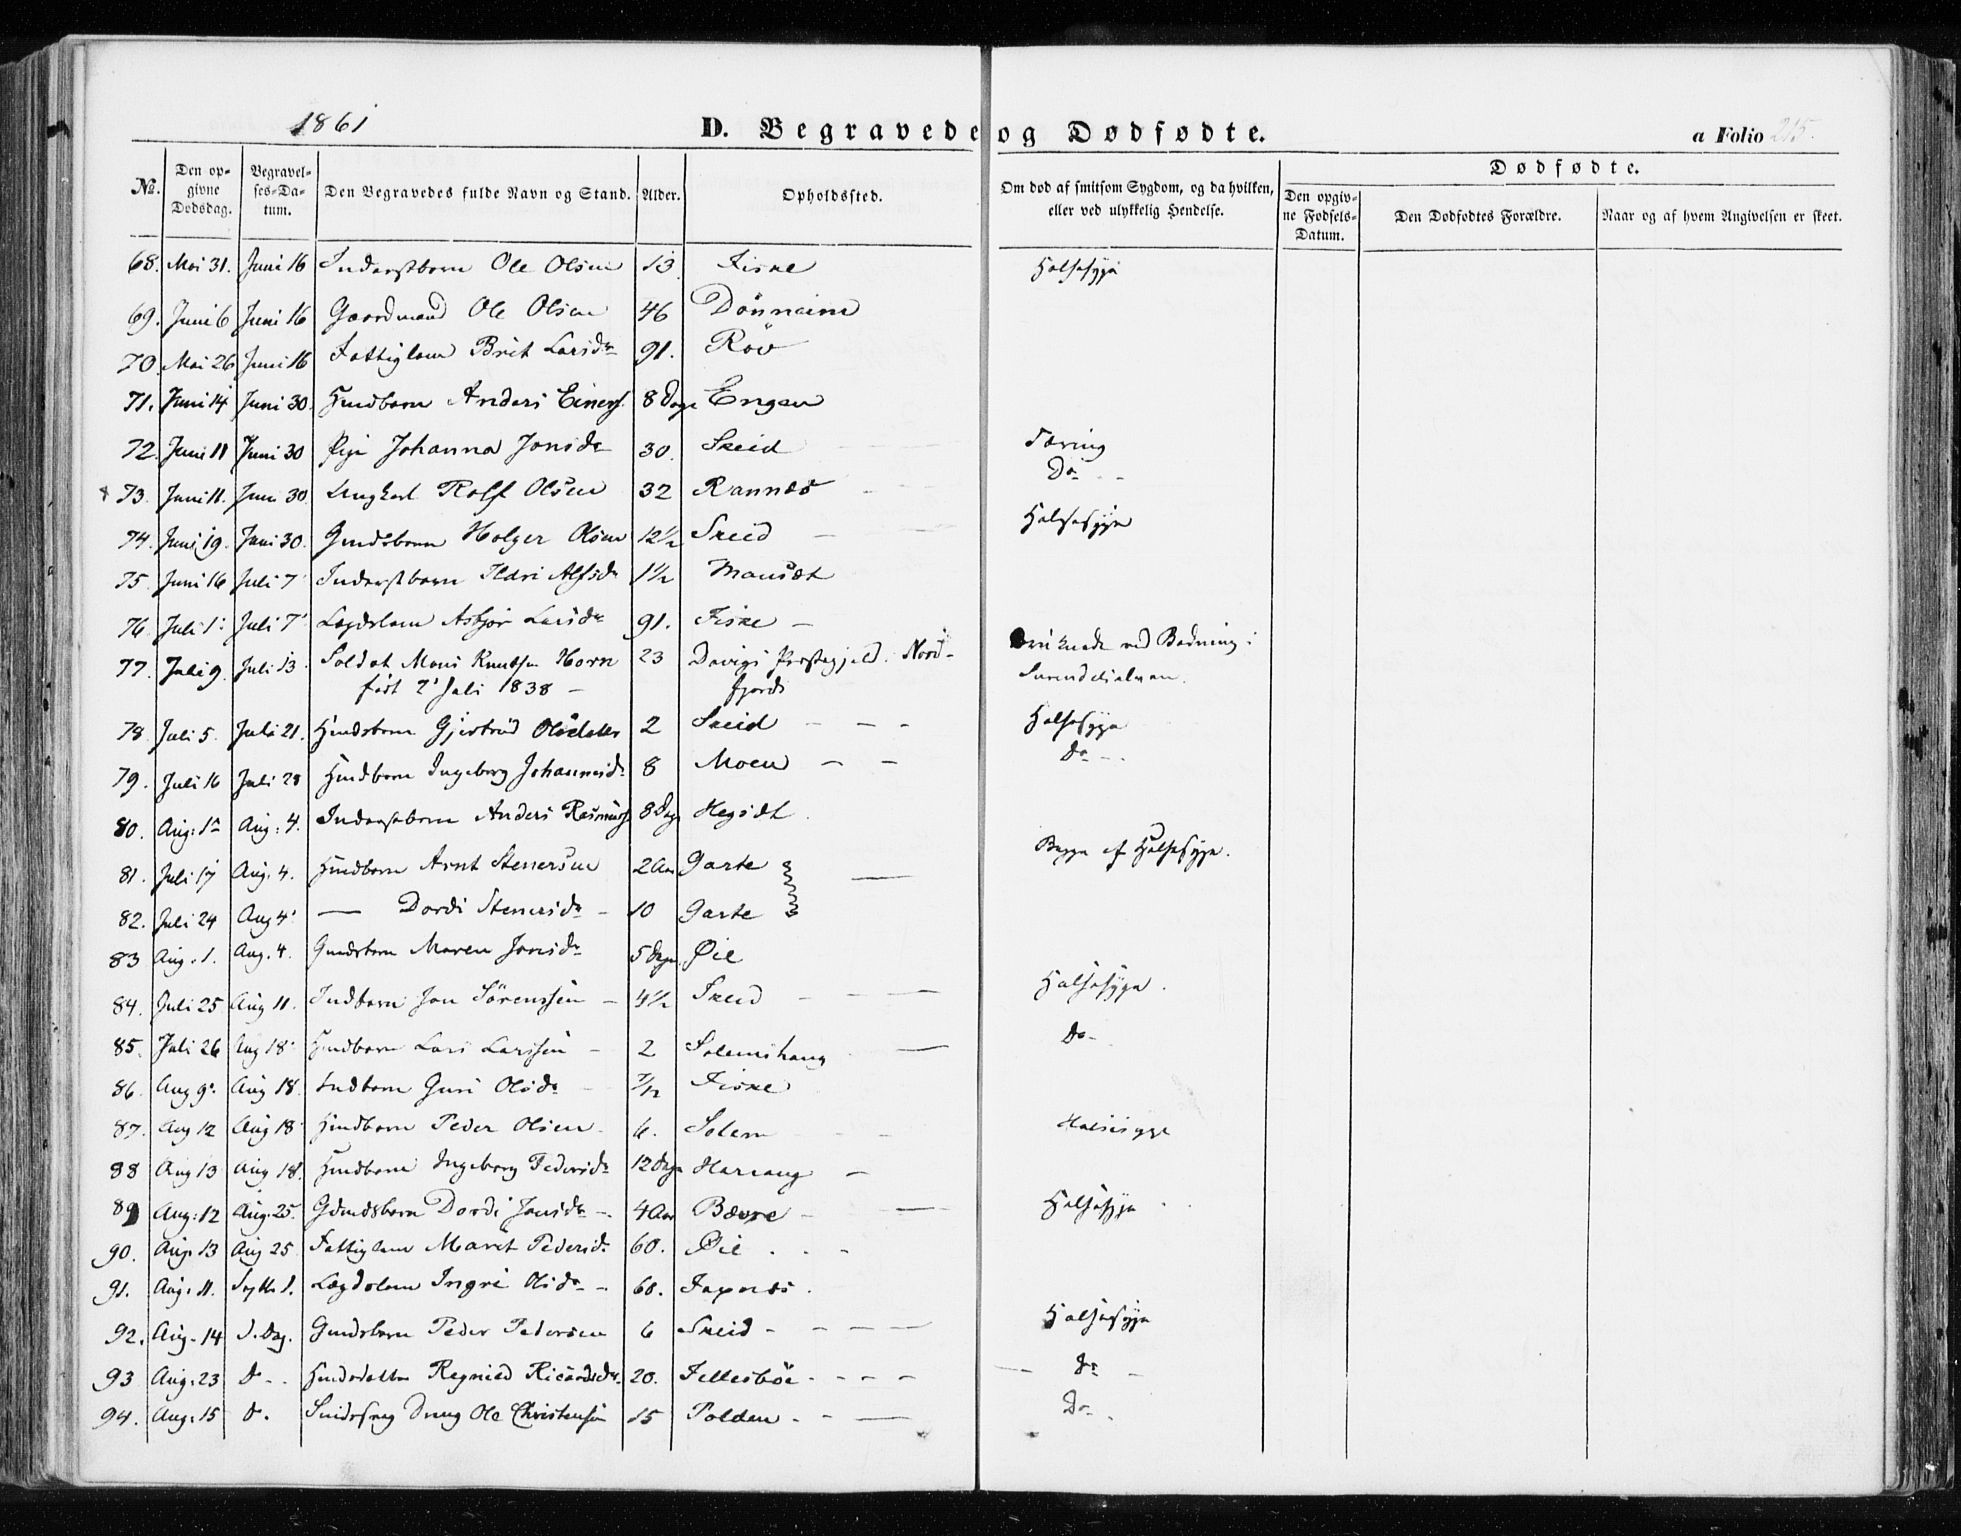 1861
D. Begravede og Dødfødte.
a Folio 215.
Dødfødte.
No. Den opgivne Dødsdag. Begravelses-Datum. Den Begravedes fulde Navn og Stand. Alder. Opholdssted. Om død af smitsom Sygdom, og da hvilken, eller ved ulykkelig Hendelse. Den opgivne Fødsels-Datum. Den Dødfødtes Forældre. Naar og af hvem Angivelsen er skeet.
68. Mai 31. Juni 16 Inderstbarn Ole Olsen 13 Fiske Halssyge
69. Juni 6 Juni 16 Gaardmand Ole Olsen 46 Dönneim
70. Mai 26 Juni 16 Fattiglem Brit Larsdr 91. Röv
71. Juni 14 Juni 30. Husbarn Anders Einers. 8 Dage Engen
72. Juni 11 Juni 30 Pige Johanna Jonsdr 30. Skeid Tæring
73. Juni 11. Juni 30 Ungkarl Rolf Olsen 32 Rannæs Do
74. Juni 19. Juni 30. Gmdsbarn Holger Olsen 12½ Skeid Halssyge
75. Juni 16 Juli 7 Inderstbarn Ildri Alfsdr 1½ Mausæt
76. Juli 1. Juli 7 Lægdslem Asbjör Larsdr 91. Fiske
77. Juli 9. Juli 13. Soldat Mons Knudsen Horn 23 Davigs Præstegjeld. Nord- druknede ved Badning i
født 2 Juli 1838 fjord Surendalselven.
78. Juli 5. Juli 21. Husbarn Gjertrud Olsdatter 2 Skeid Halssyge
79. Juli 16 Juli 28 Husbarn Ingeborg Johannesdr 8 Moen Do
80. Aug. 1 Aug. 4. Inderstbarn Anders Rasmuss 8 Dage Hegsæt
81. Juli 17 Aug. 4. Husbarn Arnt Stenersen 2 Aar Garte Begge af Halssyge.
82. Juli 24 Aug 4 — Dordi Stenersdr 10 Garte
83 Aug. 1. Aug. 4. Gmdsbarn Maren Jonsdr 5 Dage Øie
84. Juli 25 Aug 11. Indbarn Jon Sörenssen 4½ Skeid Halssyge.
85. Juli 26 Aug 18 Husbarn Lars Larssen 2 Solemshaug Do
86. Aug 9. Aug 18. Indbarn Guri Olsdr 7/12 Fiske
87. Aug 12 Aug 18 Husbarn Peder Olsen 6. Solem Halssyge
88 Aug 13 Aug 18. Husbarn Ingeborg Pedersdr 12 Dage Harang
89 Aug. 12 Aug. 25. Gdmdsbarn Dordi Jonsdr 4 Aar Bævre Halssyge
90. Aug. 13 Aug 25 Fattiglem Marit Pedersdr 60. Øie
91. Aug. 11. Septb. 1. Lægdslem Ingri Olsdr 60. Faxnæs.
92. Aug. 14 S. Dag. Gmdsbarn Peder Pedersen 6 Skeid Halssyge
93 Aug. 23 Do Husdatter Regnild Ricardsdr. 20. Fellesböe Do
94. Aug. 15 Do. Dreng Ole Christensen 15 Polden Do